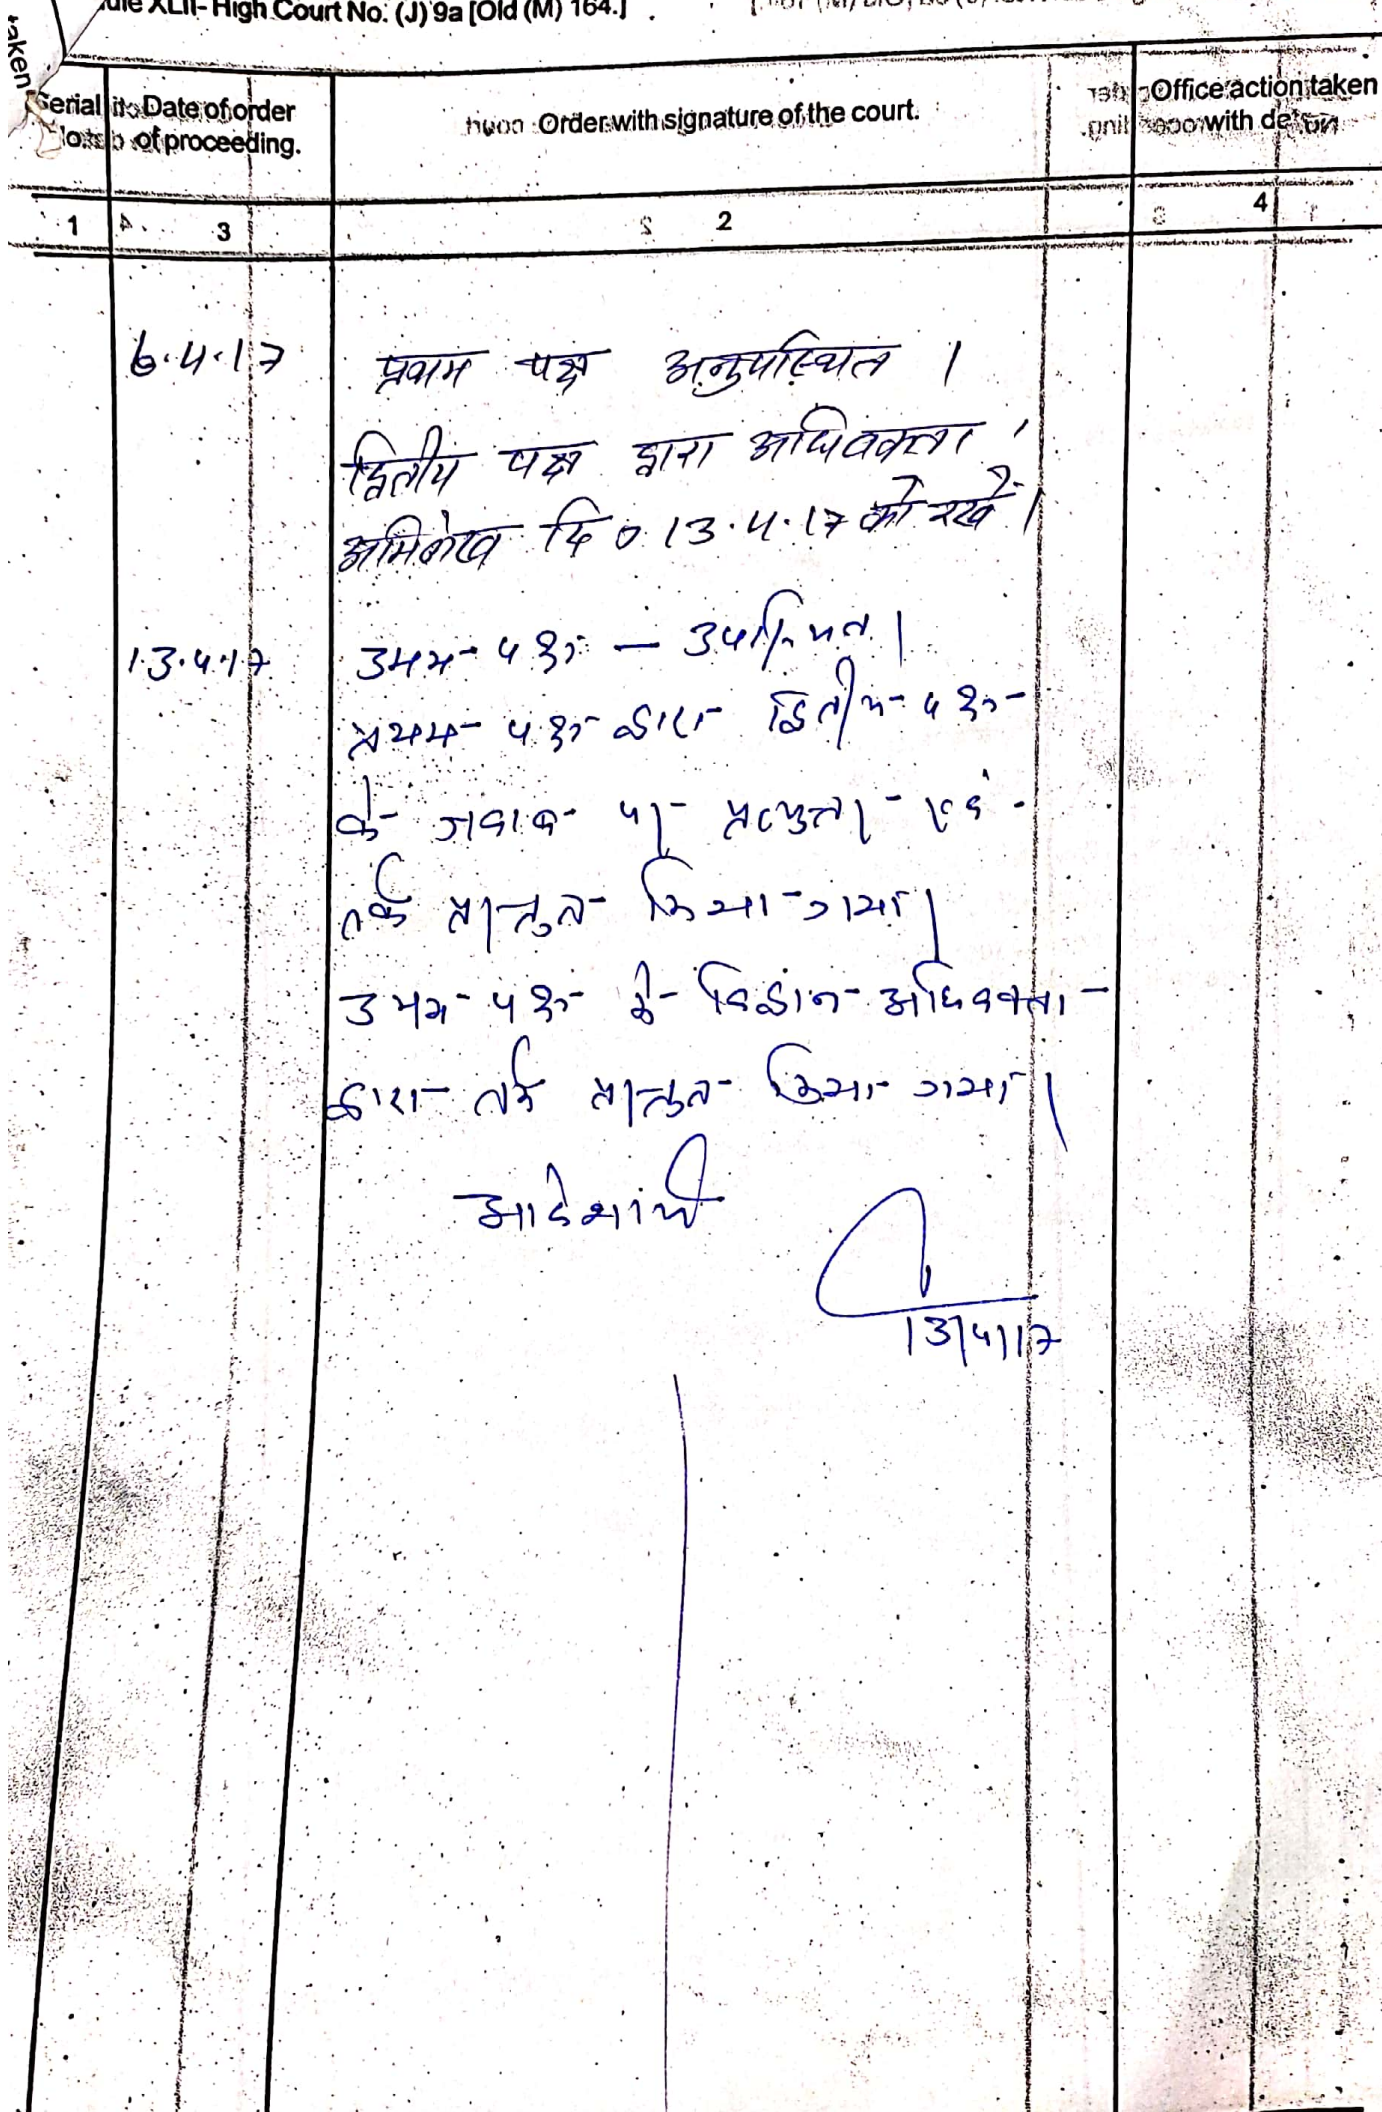 XLII- High Court No. (J) 9a [Old (M) 164.]
taken
Serial Date of order Order with signature of the court. Office action taken
of proceeding. with
1 3 2 4
6.4.17 प्रथम पक्ष अनुपस्थित ।
द्वितीय पक्ष द्वारा अधिवक्ता ।
अभिलेख दि० 13.4.17 को रखें ।
13.4.17 उभय पक्ष — उपस्थित ।
प्रथम पक्ष द्वारा द्वितीय पक्ष
के जवाब पर प्रत्युत्तर एवं
तर्क प्रस्तुत किया गया ।
उभय पक्ष के विद्वान अधिवक्ता
द्वारा तर्क प्रस्तुत किया गया ।
आदेशार्थ
13/4/17